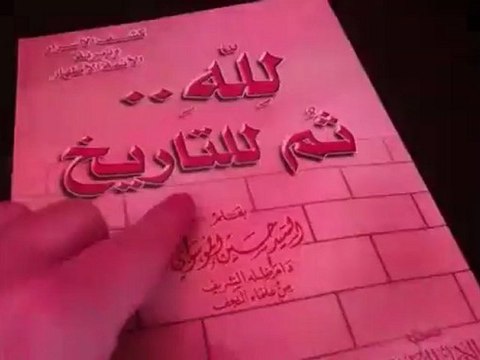 كشف الأسرار
وتبرئة
الأئمة الأطهار
لِلّٰهِ ..
ثُم للتاريخ
بقلم
السيد حسين الموسوي
من علماء النجف